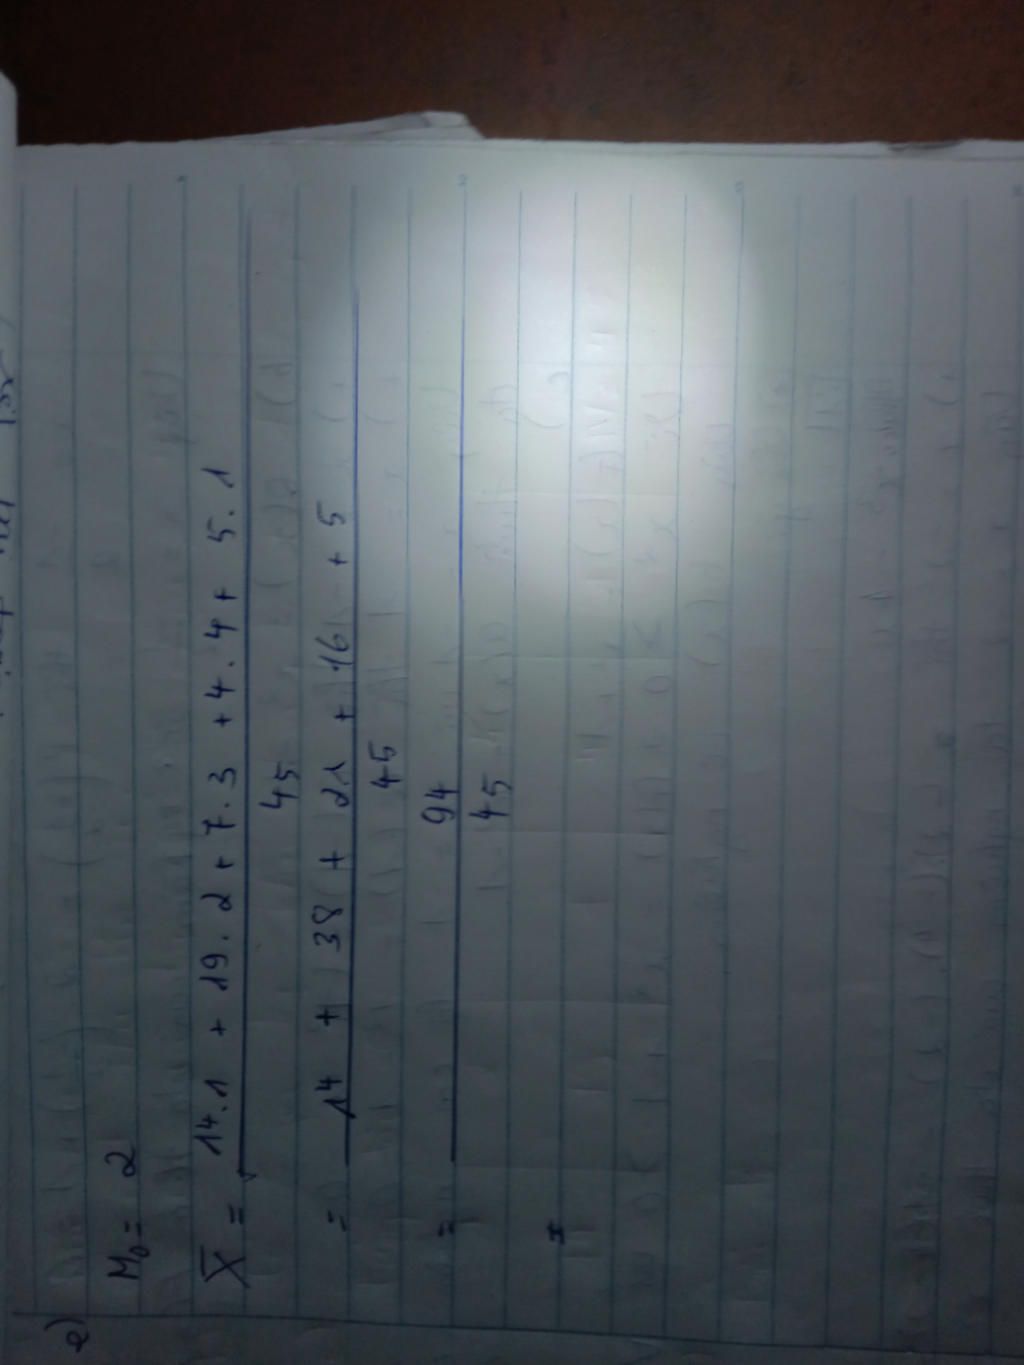 e)
M₀ = 2
X̅ = 14.1 + 19.2 + 7.3 + 4.4 + 5.1
45
= 14 + 38 + 21 + 16 + 5
45
= 94
45
=